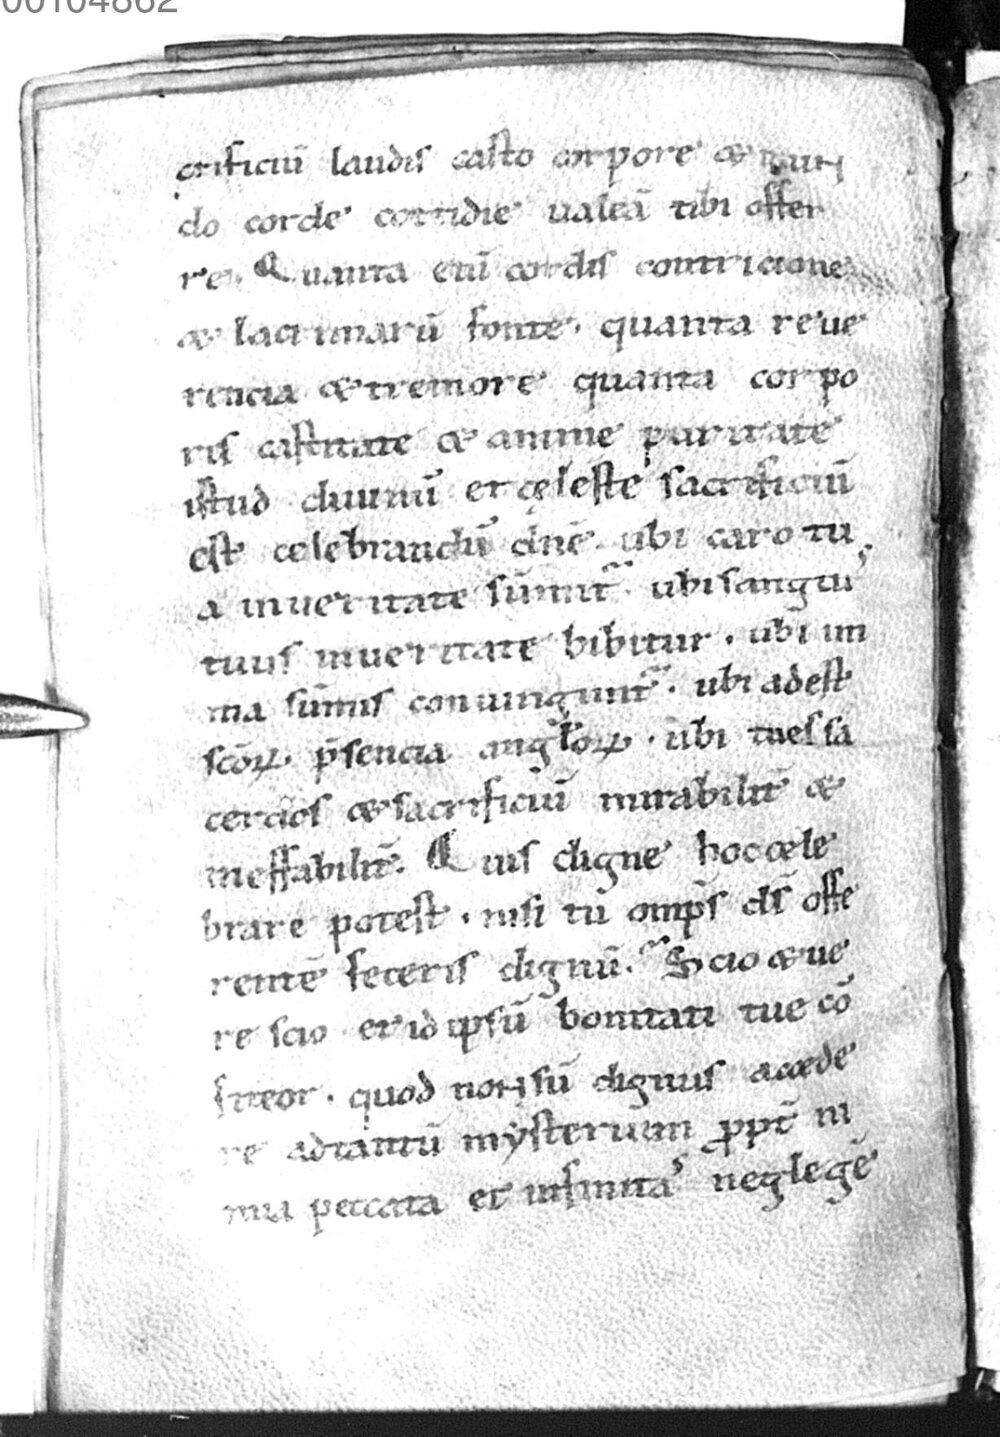 00104862
crificiū laudis casto corpore & mun
do corde cottidie ualeā tibi offer
re. Quanta eni cordis contricione
& lacrimarū fonte. quanta reue
rencia & tremore quanta corpo
ris castitate & anime puritate
istud diuinū et cęleste sacrificiū
est celebrandū dn̄e. ubi caro tu
a in ueritate sūmit᷑. ubi sanguis
tuus in ueritate bibitur. ubi im
ma sūmis coniungunt᷑. ubi adest
sc̄oꝝ p̄sencia angl̄oꝝ. ubi tu es sa
cerdos & sacrificiū mirabilit̄ &
ineffabilit̄. Quis digne hoc cele
brare potest. nisi tu omp̄s ds̄ offe
rentē feceris dignū. Scio & ue
re scio et id ipsū bonitati tue cō
fiteor. quod non sū dignus accede
re ad tantū mysterium ꝓpt̄ ni
mia peccata et infinitas neglegē